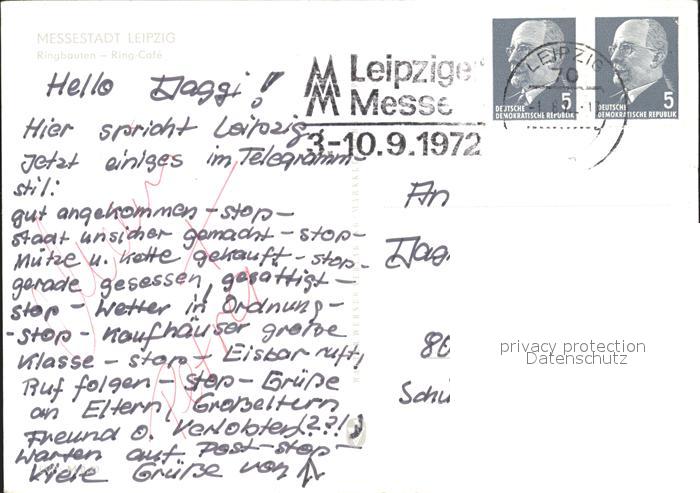 MESSESTADT LEIPZIG
Ringbauten – Ring-Café
Leipziger
Messe
3.-10.9.1972
LEIPZIG
70
5
DEUTSCHE
DEMOKRATISCHE REPUBLIK
5
DEUTSCHE
DEMOKRATISCHE REPUBLIK
Hello Daggi!
Hier spricht Leipzig
Jetzt einiges im Telegramm-
stil:
gut angekommen – stop –
Stadt unsicher gemacht – stop –
Mütze u. Kette gekauft – stop –
gerade gesessen, gesättigt –
stop – Wetter in Ordnung –
– stop – Kaufhäuser große
Klasse – stop – Eisbar ruft,
Ruf folgen – stop – Grüße
an Eltern, Großeltern
Freund o. Verlobten(??!)
Warten auf Post – stop –
Viele Grüße von
Petra
An
Dag
80
Schü
privacy protection
Datenschutz